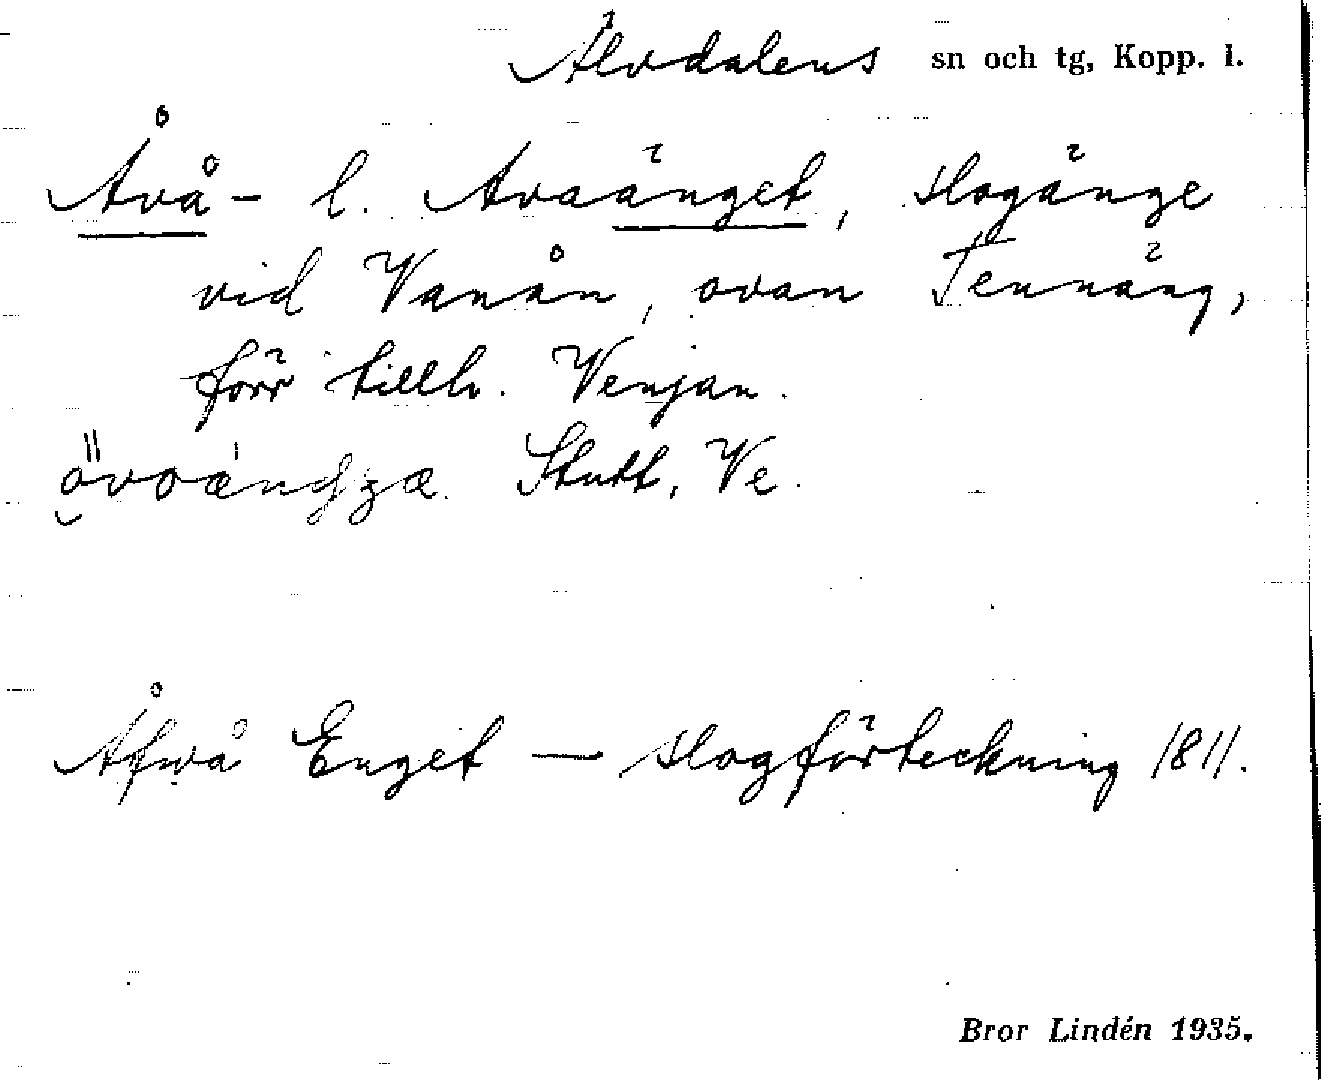 Älvdalens sn och tg, Kopp. l.
Åvå- l. Avaänget, slogänge
vid Vanån, ovan Tennäng,
förr tillh. Venjan.
Stutt, Ve.
Åfwå Enget — slogförteckning 1811.
Bror Lindén 1935.